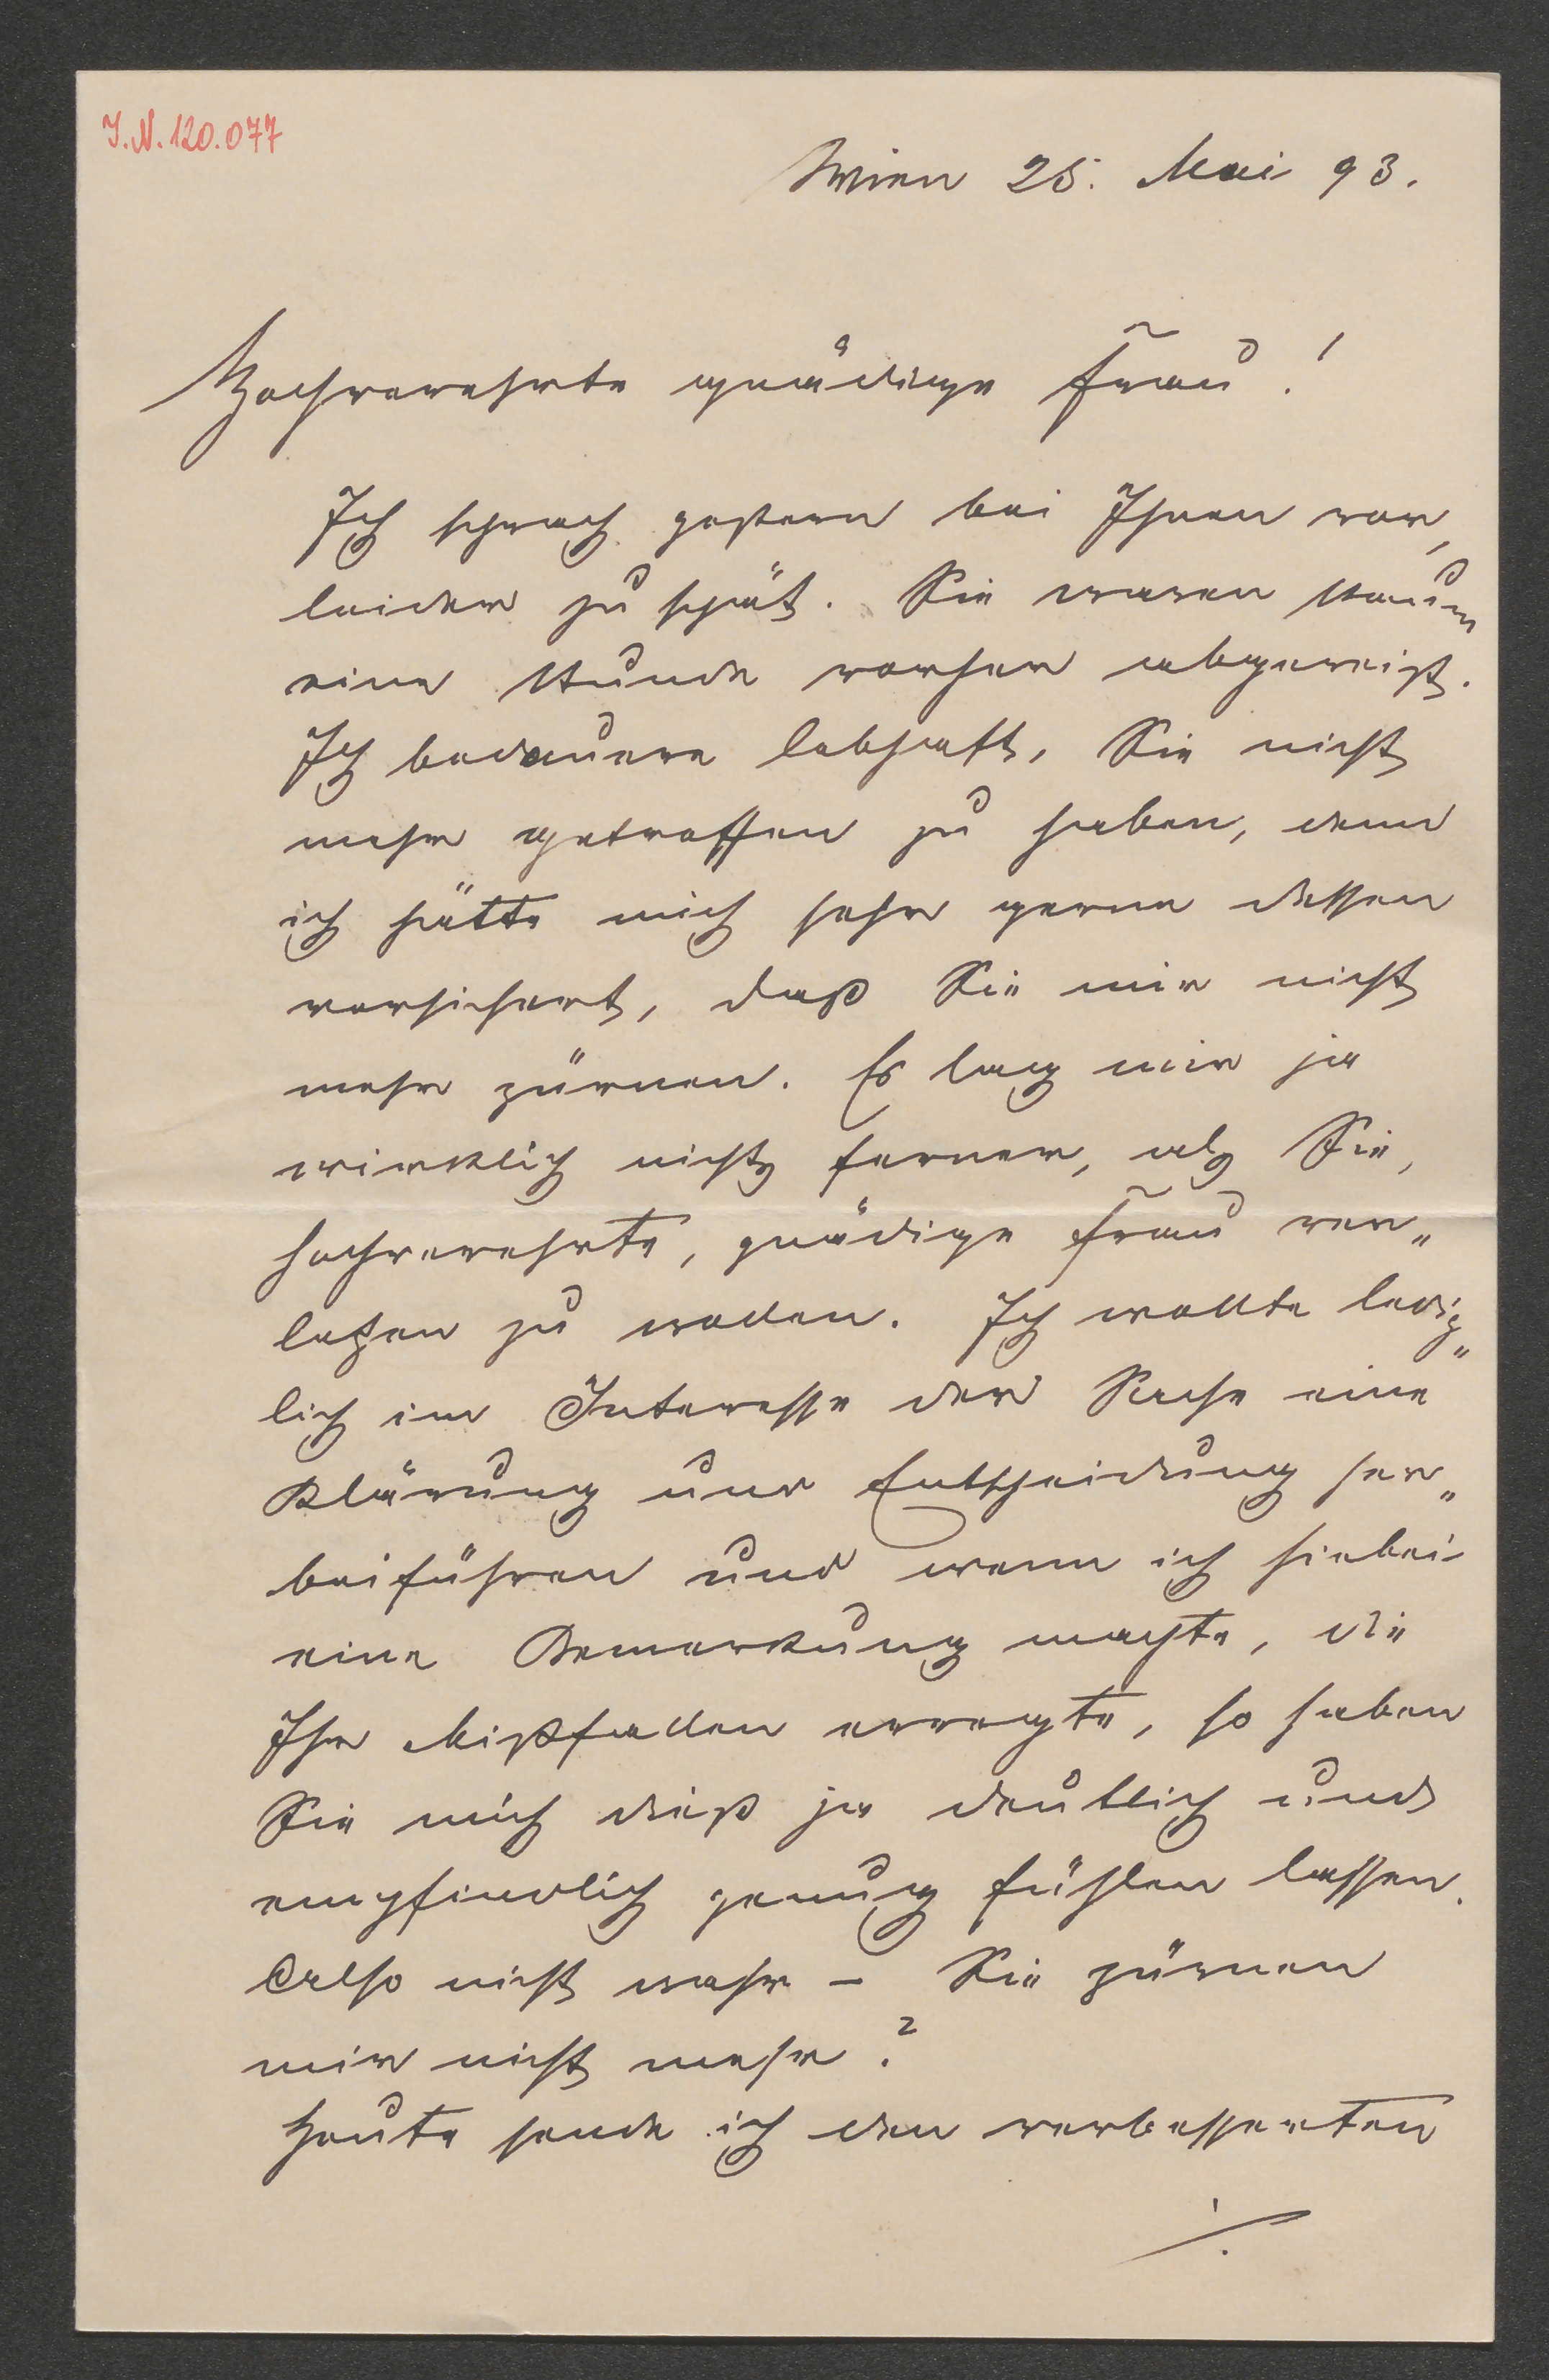 J.N. 120.077
Wien 25. Mai 93.
Hochverehrte gnädige Frau!
Ich sprach gestern bei Ihnen vor,
leider zu spät. Sie waren kaum
eine Stunde vorher abgereist.
Ich bedauere lebhaft, Sie nicht
mehr getroffen zu haben, denn
ich hätte mich sehr gerne dessen
versichert, daß Sie mir nicht
mehr zürnen. Es lag mir ja
wirklich nichts ferner, als Sie,
hochverehrte, gnädige Frau ver„
letzen zu wollen. Ich wollte ledig„
lich im Interesse der Sache eine
Klärung und Entscheidung her„
beiführen und wenn ich hiebei
eine Bemerkung machte, die
Ihr Mißfallen erregte, so haben
Sie mich dieß ja deutlich und
empfindlich genug fühlen lassen.
Also nicht wahr – Sie zürnen
mir nicht mehr?
Heute sende ich den verbesserten
./.